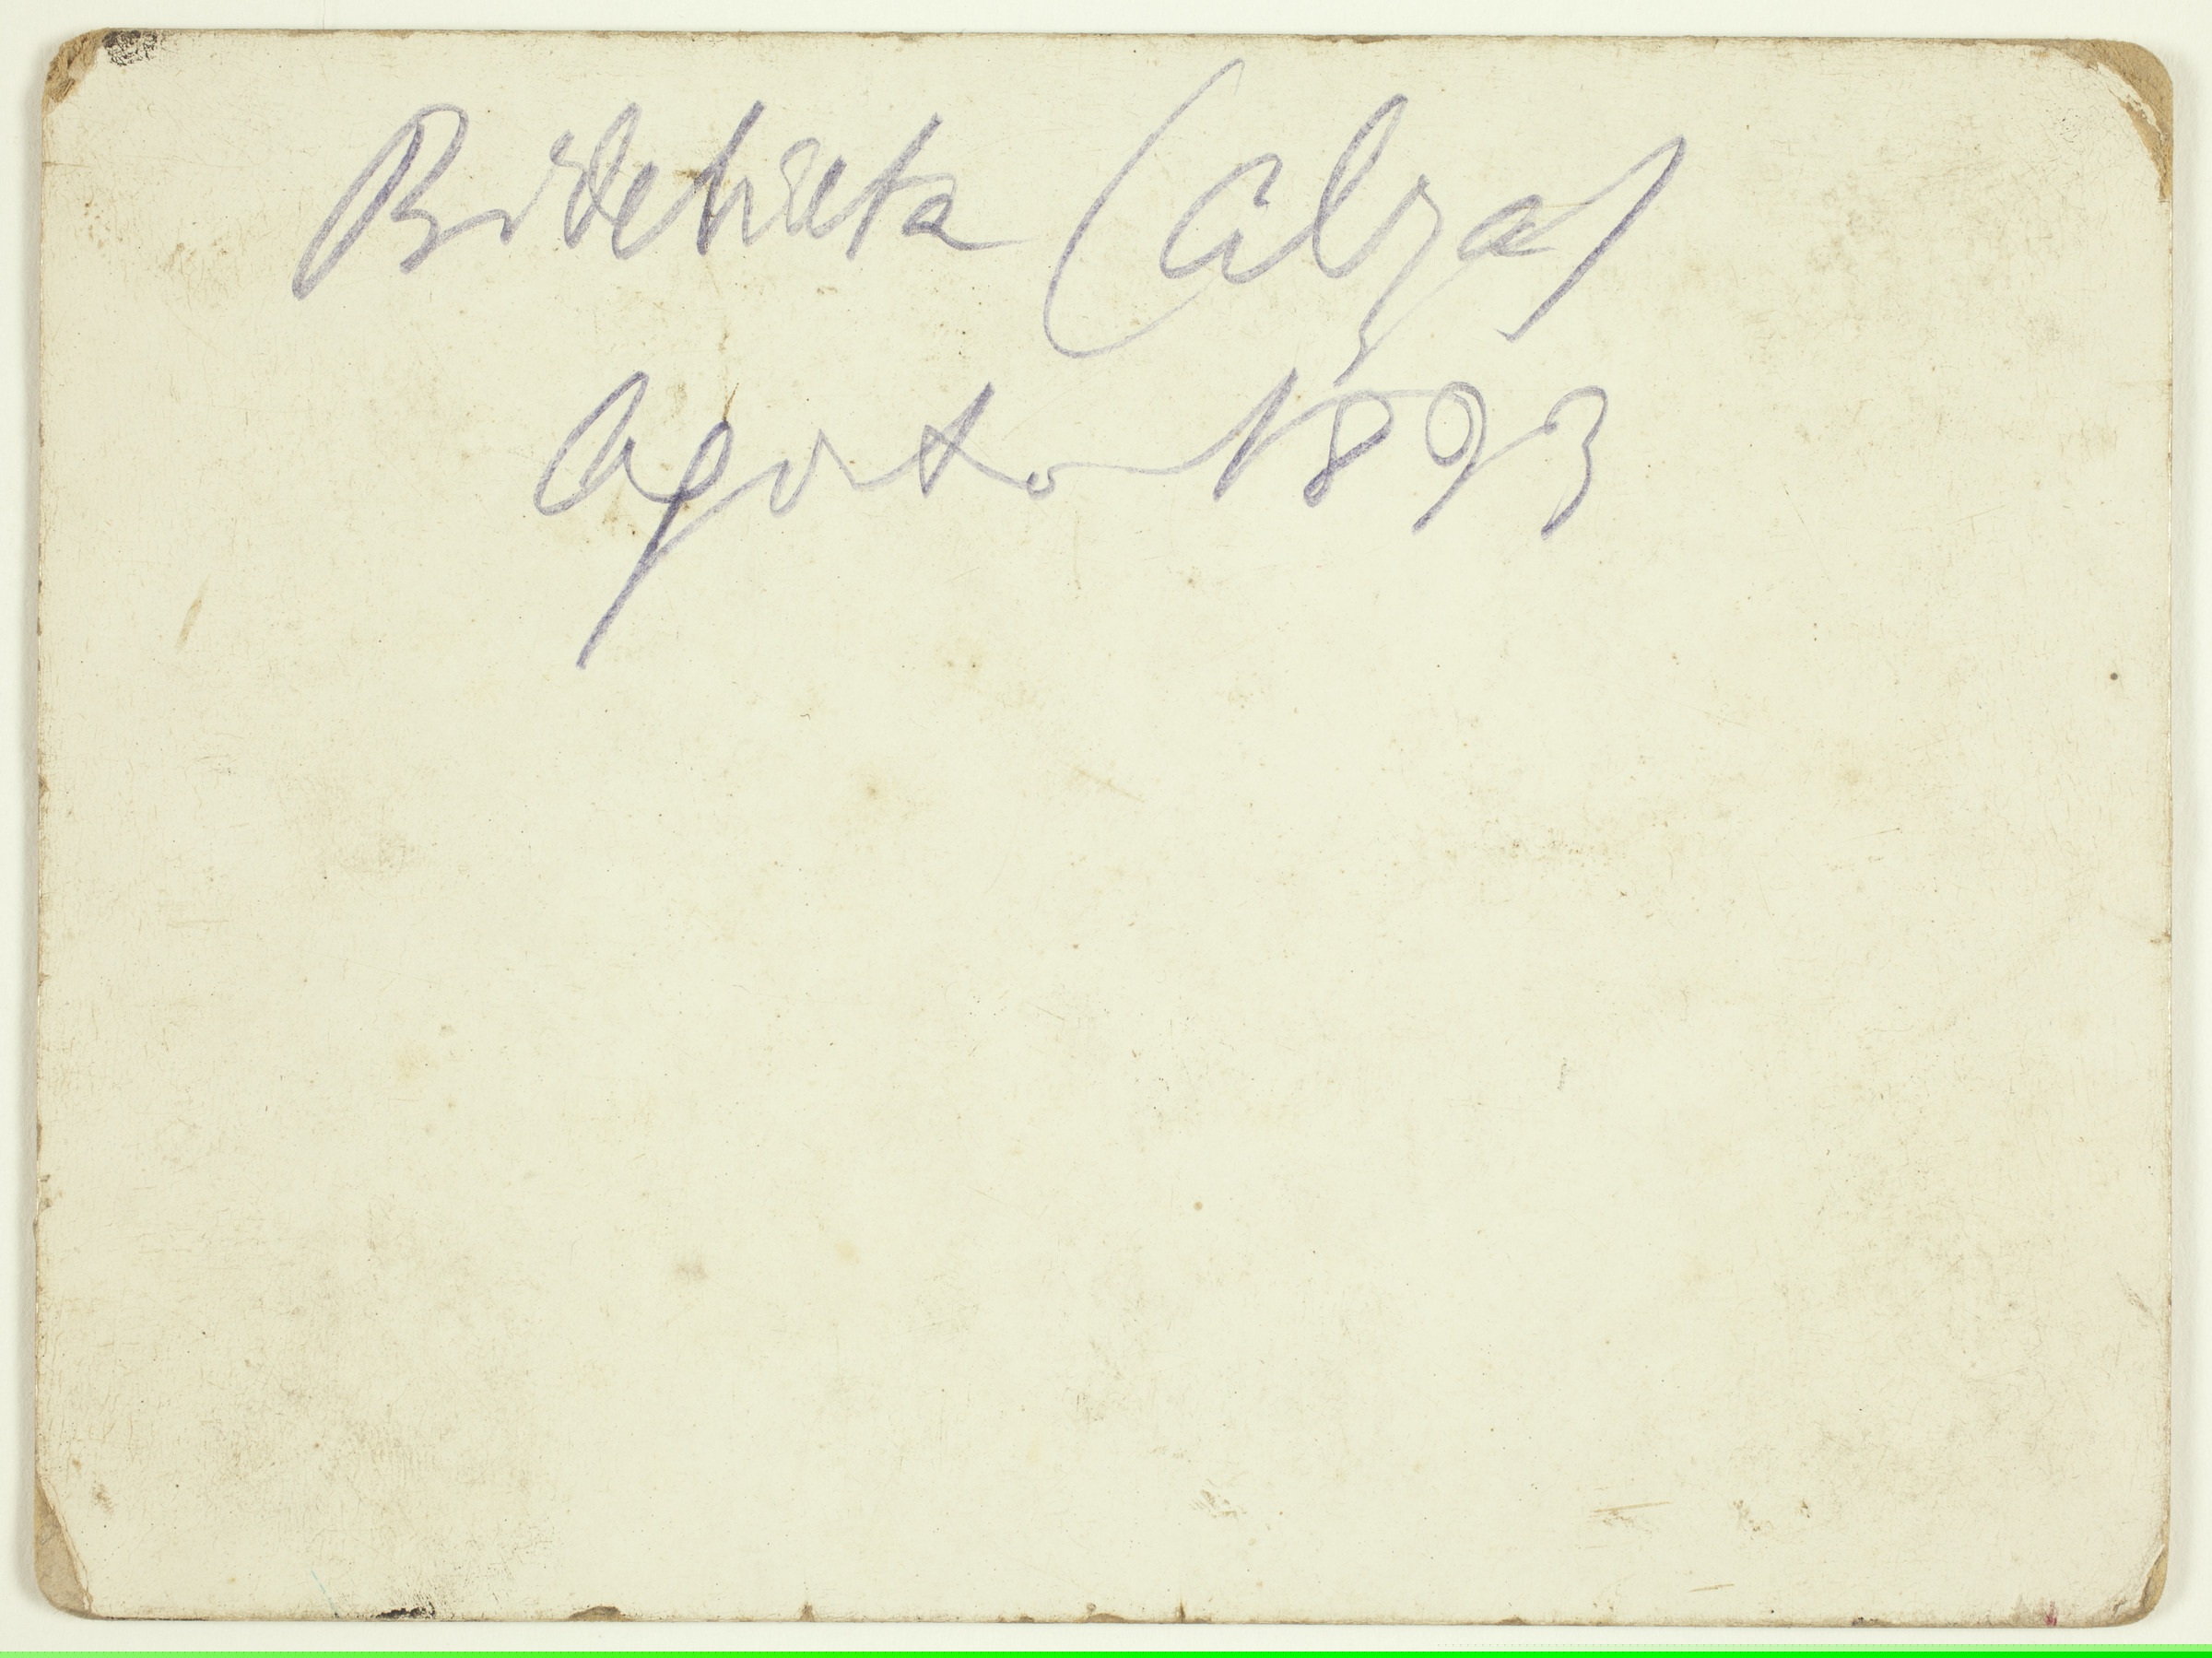 Bidebieta (Alza)
Agosto 1893